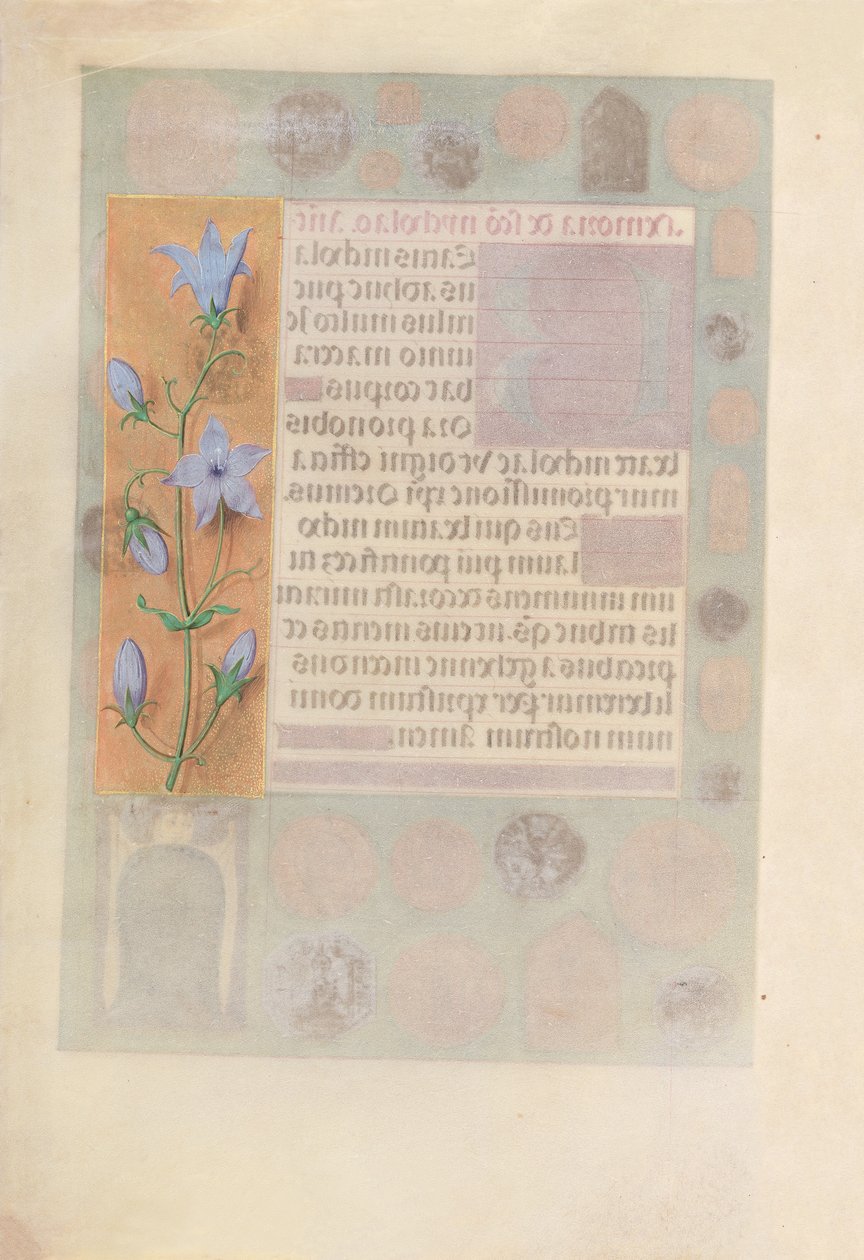 Memoria de sco nycholao. An~
Eatus nichola
us adhuc pue
rulus multo je
iunio macera
bat corpus
Ora pro nobis
beate nicholae Vt digni efficia
mur promissione xpi Oremus.
Eus qui beatum nicho
laum pium pontificem tu
um innumeris decorasti miracu
lis tribue qs. ut eius meritis et
precibus a gehenne incendiis
liberemur per xpristum domi
num nostrum Amen.